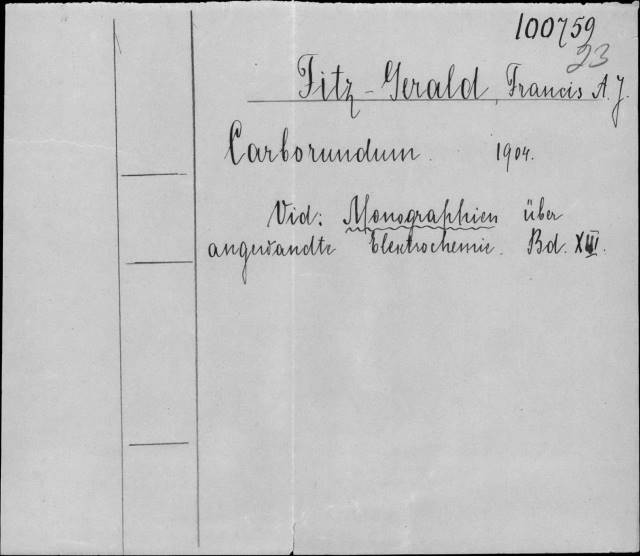 100759
23
Fitz-Gerald, Francis A. J.
Carborundum. 1904.
Vid: Monographien über
angewandte Elektrochemie. Bd. XIII.